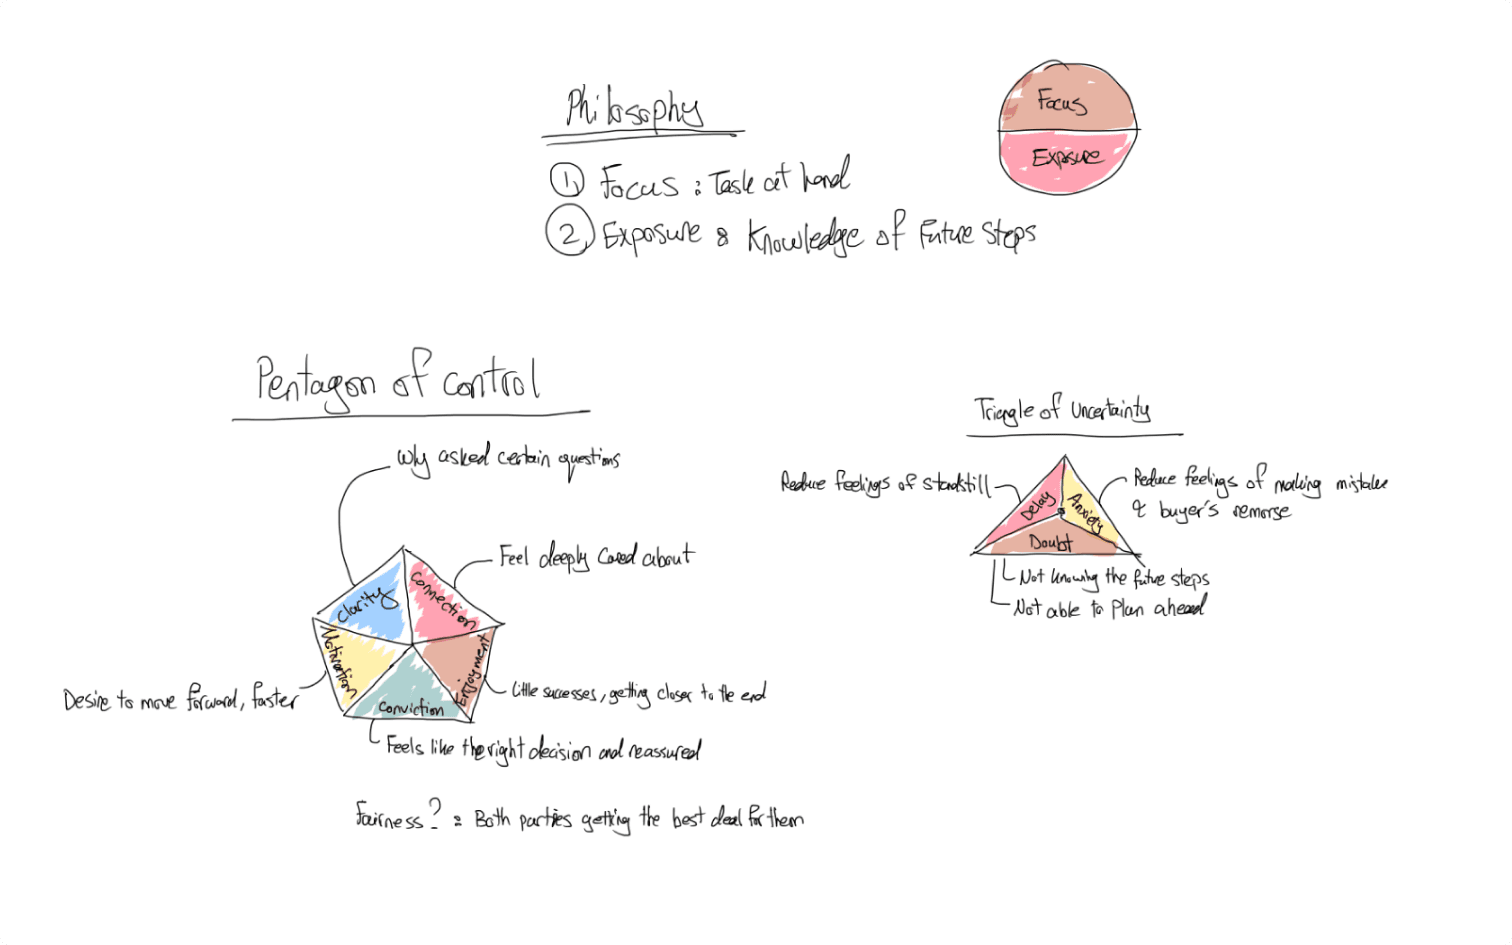 Philosophy
① Focus : Task at hand
② Exposure : Knowledge of Future Steps
Focus
Exposure
Pentagon of control
Why asked certain questions
Feel deeply cared about
Clarity
Connection
Motivation
Enjoyment
Conviction
Desire to move forward, faster
Little successes, getting closer to the end
Feels like the right decision and reassured
Fairness? : Both parties getting the best deal for them
Triangle of Uncertainty
Reduce feelings of standstill
Reduce feelings of making mistake
& buyer's remorse
Delay
Anxiety
Doubt
Not knowing the future steps
Not able to Plan ahead